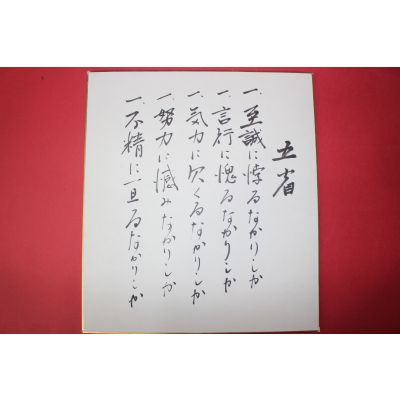 五省
一、至誠に悖るなかりしか
一、言行に愧るなかりしか
一、気力に欠くるなかりしか
一、努力に憾みなかりしか
一、不精に亘るなかりしか